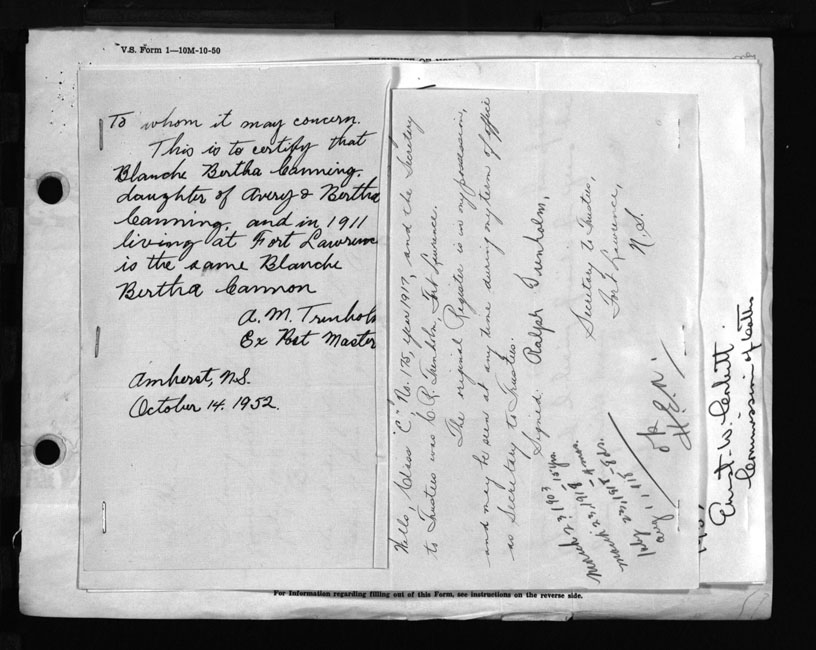 V.S. Form 1—10M-10-50
To whom it may concern.
This is to certify that
Blanche Bertha Canning,
daughter of Avery & Bertha
Canning, and in 1911
living at Fort Lawrence
is the same Blanche
Bertha Cannon
A. M. Trenholm
Ex Post Master
Amherst, N.S.
October 14. 1952.
Mills, Class "C" No. 175, year 1917, and the Secretary
to Trustees was C. R. Trenholm, Fort Lawrence.
The original Register is in my possession,
and may be seen at any time during my term of office
as Secretary to Trustees.
Signed: Ralph Trenholm,
Secretary to Trustees,
Fort Lawrence,
N.S.
March 23, 1903 15 yrs.
March 23, 1918 - 4 mos.
March 23, 1918 - 8 ds.
July 23, 1918
Aug 1 1918
OK
H.E.N.
Ernst. W.
Commission of Oaths
For Information regarding filling out of this Form, see instructions on the reverse side.